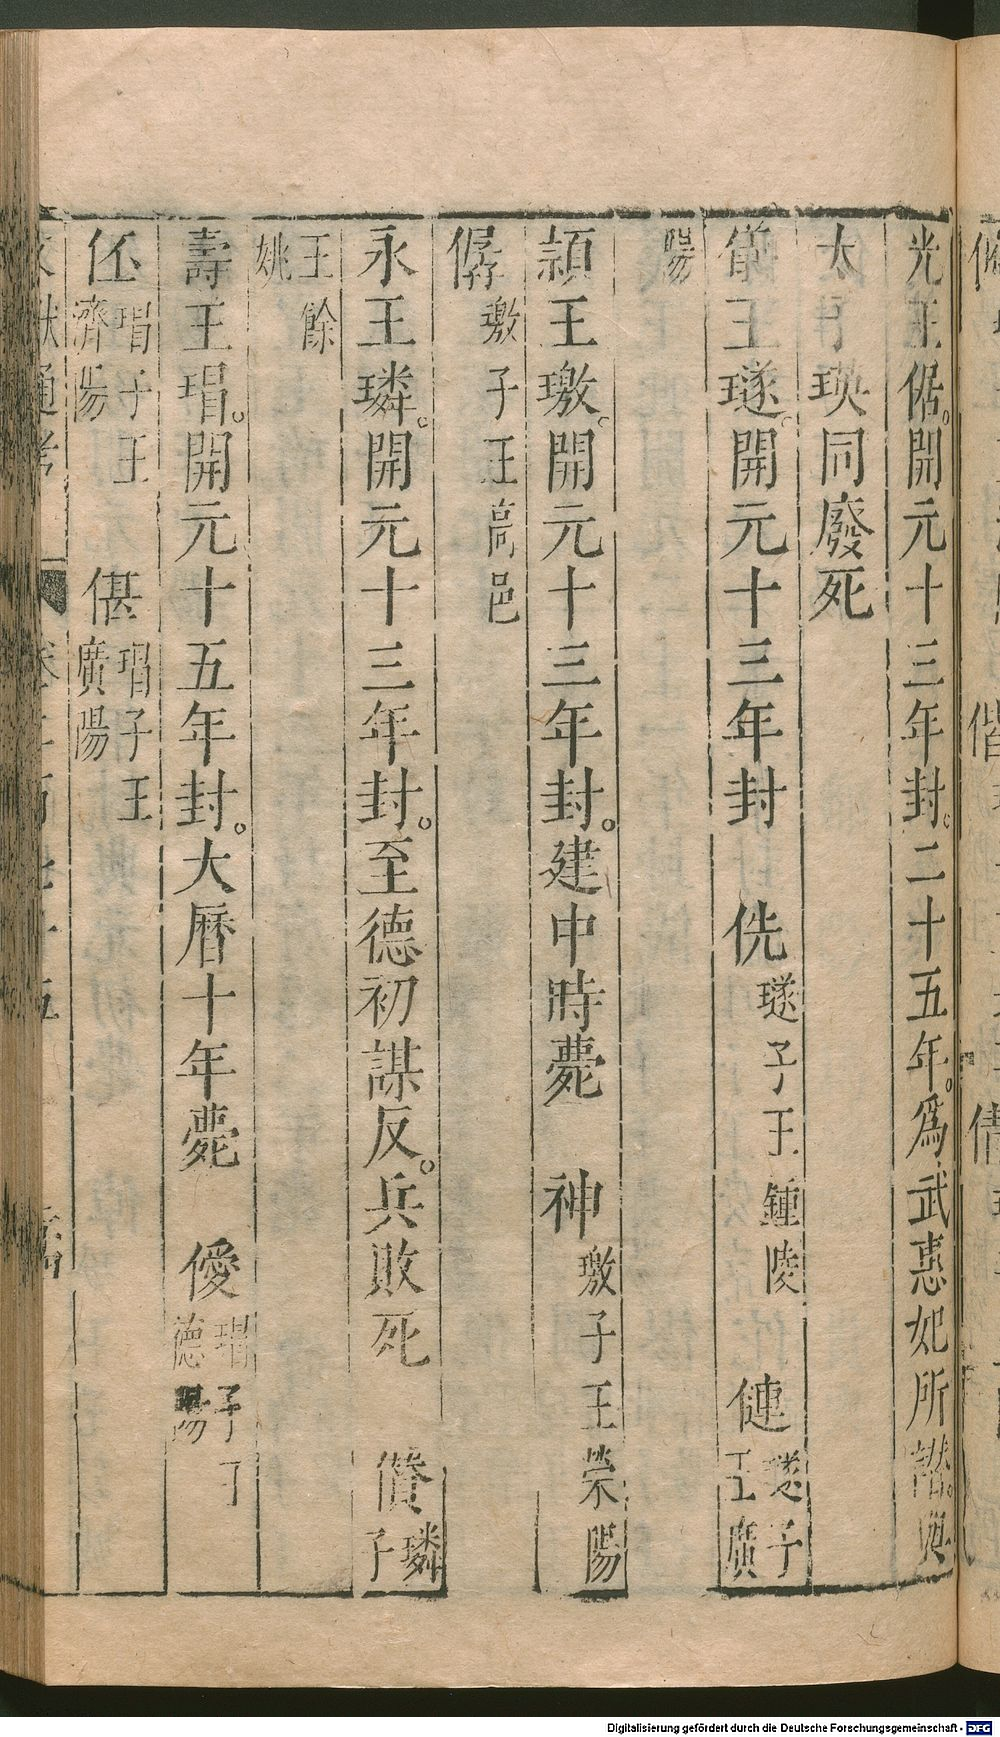 光王倨。開元十三年封。二十五年。爲武惠妃所譖。與
太子瑛同廢死
儀王璲。開元十三年封 侁 璲子王鍾陵 健 璲子王廣
陽
潁王璬。開元十三年封。建中時薨 神 璬子王榮陽
僝 璬子王高邑
永王璘。開元十三年封。至德初謀反。兵敗死 儹 璘子
王餘姚
壽王瑁。開元十五年封。大曆十年薨 優 瑁子王德陽
伾 瑁子王濟陽 偡 瑁子王廣陽
文獻通考 卷二百七十五
Digitalisierung gefördert durch die Deutsche Forschungsgemeinschaft - DFG